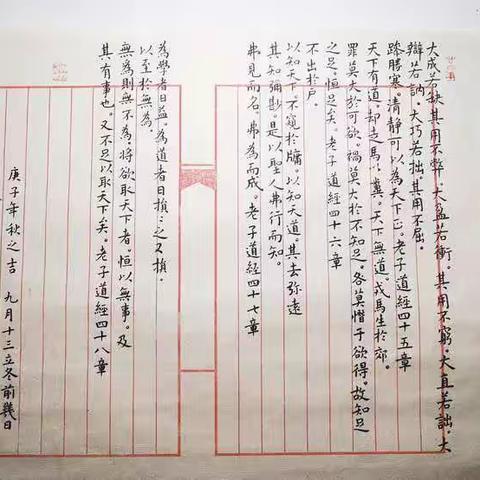 大成若缺其用不弊。大盈若衝。其用不窮。大直若詘。大
辯若訥。大巧若拙其用不屈。
躁勝寒。清静可以為天下正。老子道經四十五章
天下有道。却走馬以糞。天下無道。戎馬生於郊。
罪莫大於可欲。禍莫大於不知足。咎莫憯于欲得。故知足
之足。恒足矣。老子道經四十六章
不出於户。
以知天下。不窺於牖。以知天道。其去弥遠
其知彌尠。是以聖人弗行而知。
弗見而名。弗為而成。老子道經四十七章
為學者日益。為道者日損。之又損。
以至於無為。
無為則無不為。將欲取天下者。恒以無事。及
其有事也。又不足以取天下矣。老子道經四十八章
庚子年秋之吉 九月十三立冬前幾日